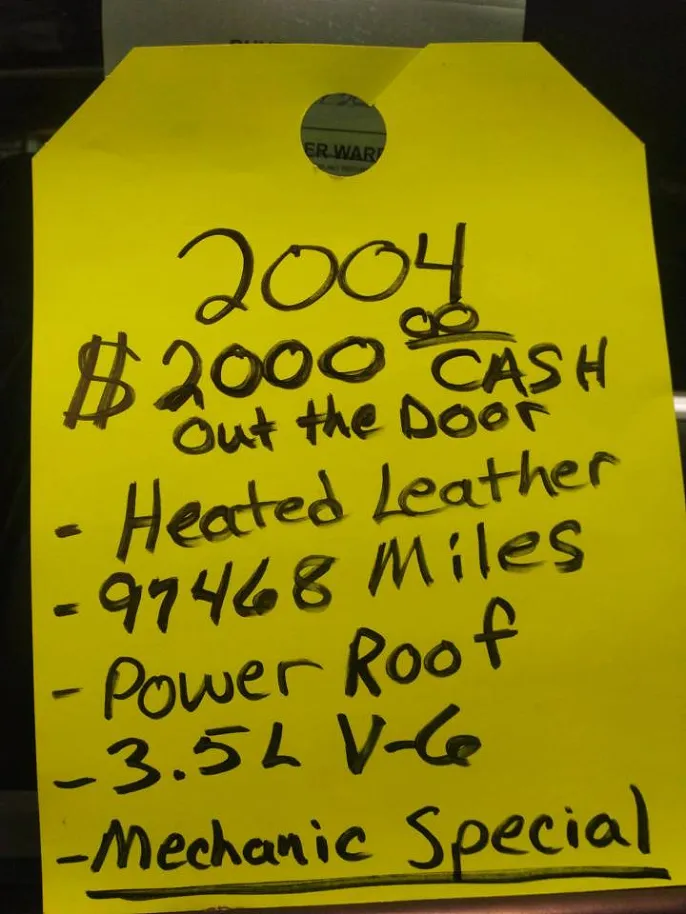 ER WAR
2004
$2000 00 CASH
Out the Door
- Heated Leather
- 97468 Miles
- Power Roof
- 3.5L V-6
- Mechanic Special